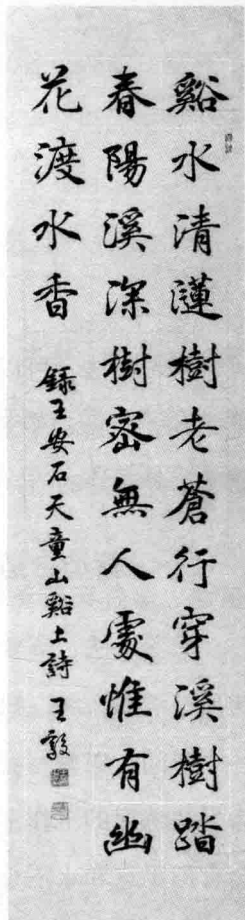 谿水清漣樹老蒼行穿溪樹踏
春陽溪深樹密無人處惟有幽
花渡水香
錄王安石天童山谿上詩 王毅